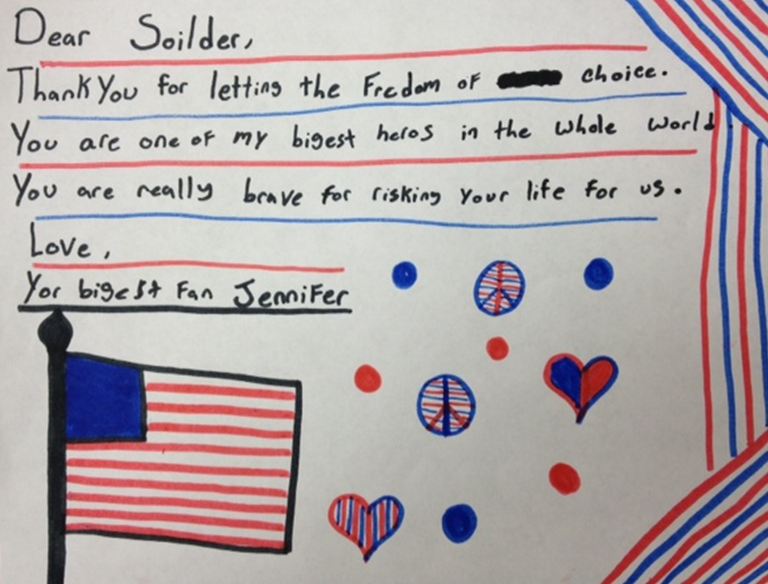 Dear Soilder,
Thank You for letting the Fredom of choice.
You are one of my bigest heros in the whole world.
You are really brave for risking your life for us.
Love,
Yor bigest Fan Jennifer